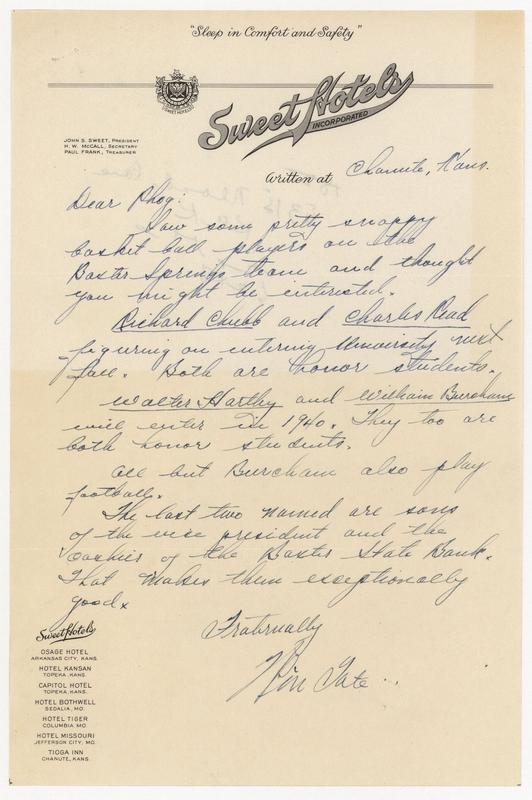 "Sleep in Comfort and Safety"
SWEET HOTELS
Sweet Hotels
INCORPORATED
JOHN S. SWEET, PRESIDENT
H. W. McCALL, SECRETARY
PAUL FRANK, TREASURER
Written at Chanute, Kans.
Dear Phog:
Saw some pretty snappy
basket ball players on the
Baxter Springs team and thought
you might be interested.
Richard Chubb and Charles Read
figuring on entering University next
fall. Both are honor students.
Walter Hartley and William Burcham
will enter in 1940. They too are
both honor students.
All but Burcham also play
football.
The last two named are sons
of the vice president and the
cashier of the Baxter State Bank.
That makes them exceptionally
good.
Fraternally
Tate
Sweet Hotels
OSAGE HOTEL
ARKANSAS CITY, KANS.
HOTEL KANSAN
TOPEKA, KANS.
CAPITOL HOTEL
TOPEKA, KANS.
HOTEL BOTHWELL
SEDALIA, MO.
HOTEL TIGER
COLUMBIA, MO.
HOTEL MISSOURI
JEFFERSON CITY, MO.
TIOGA INN
CHANUTE, KANS.